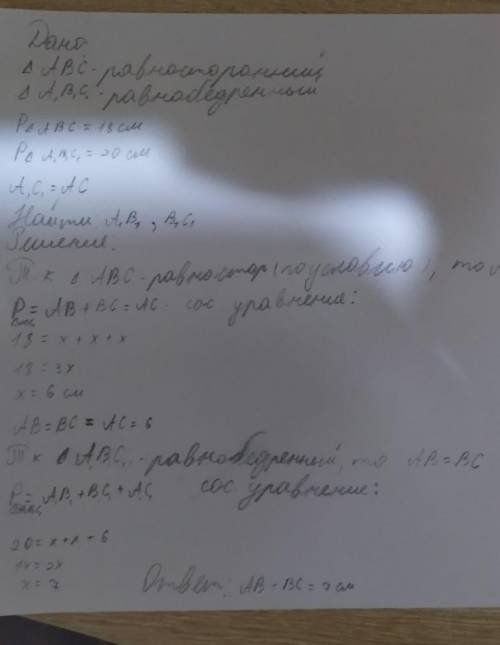 Дано
Δ ABC - равносторонний,
Δ A₁B₁C₁ - равнобедренный
P Δ ABC = 18 см
P Δ A₁B₁C₁ = 20 см
A₁C₁ = AC
Найти A₁B₁, B₁C₁
Решение:
Т к Δ ABC - равностор (по условию), то
P = AB + BC = AC сос уравнение:
18 = x + x + x
18 = 3x
x = 6 см
AB = BC = AC = 6
Т к Δ A₁B₁C₁ - равнобедренный, то AB = BC
P = A₁B₁ + B₁C₁ + A₁C₁ сос уравнение:
20 = x + x + 6
14 = 2x
x = 7
Ответ: AB = BC = 7 см